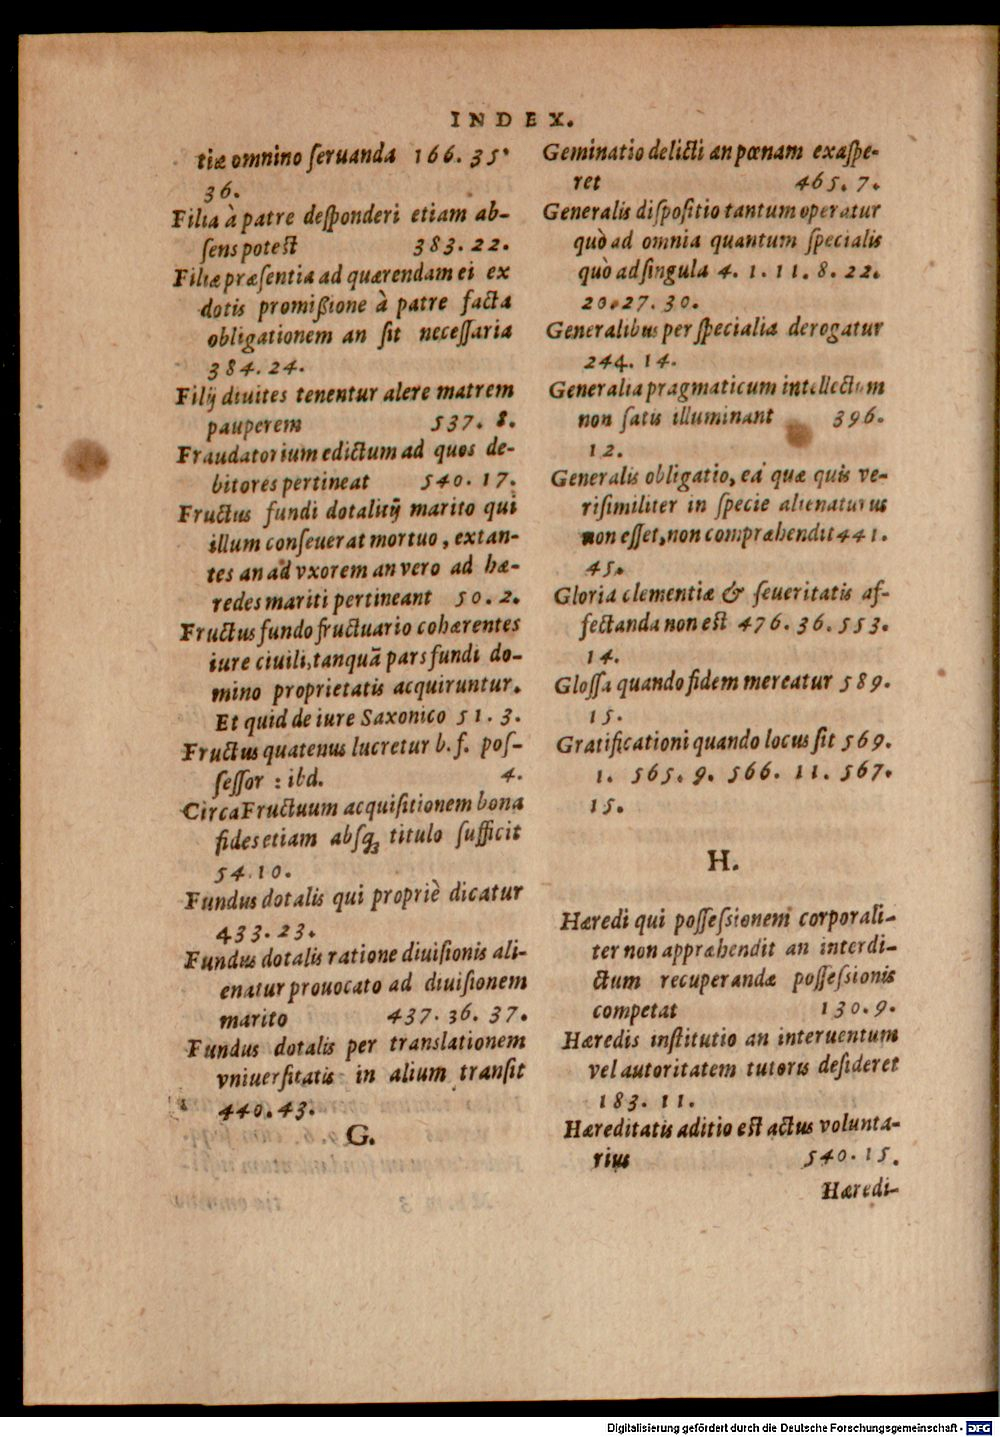 INDEX.
tiæ omnino ſeruanda 166. 35.
36.
Filia à patre deſponderi etiam ab-
ſens poteſt 383. 22.
Filiæ præſentia ad quærendam ei ex
dotis promißione à patre facta
obligationem an ſit neceſſaria
384. 24.
Filij diuites tenentur alere matrem
pauperem 537. 8.
Fraudatorium edictum ad quos de-
bitores pertineat 540. 17.
Fructus fundi dotalitij marito qui
illum conſeuerat mortuo, extan-
tes an ad vxorem an vero ad hæ-
redes mariti pertineant 50. 2.
Fructus fundo fructuario cohærentes
iure ciuili, tanquã pars fundi do-
mino proprietatis acquiruntur.
Et quid de iure Saxonico 51. 3.
Fructus quatenus lucretur b. f. poſ-
ſeſſor : ibd. 4.
Circa Fructuum acquiſitionem bona
fides etiam abſq; titulo ſufficit
54. 10.
Fundus dotalis qui propriè dicatur
433. 23.
Fundus dotalis ratione diuiſionis ali-
enatur prouocato ad diuiſionem
marito 437. 36. 37.
Fundus dotalis per translationem
vniuerſitatis in alium tranſit
440. 43.
G.
Geminatio delicti an pœnam exaſpe-
ret 465. 7.
Generalis diſpoſitio tantum operatur
quò ad omnia quantum ſpecialis
quò ad ſingula 4. 1. 11. 8. 22.
20. 27. 30.
Generalibus per ſpecialia derogatur
244. 14.
Generalia pragmaticum intellectum
non ſatis illuminant 396.
12.
Generalis obligatio, ea quæ quis ve-
riſimiliter in ſpecie alienaturus
non eſſet, non compræhendit 441.
45.
Gloria clementiæ & ſeueritatis af-
fectanda non eſt 476. 36. 553.
14.
Gloſſa quando fidem mereatur 589.
15.
Gratificationi quando locus ſit 569.
1. 565. 9. 566. 11. 567.
15.
H.
Hæredi qui poſſeſsionem corporali-
ter non appræhendit an interdi-
ctum recuperandæ poſſeſsionis
competat 130. 9.
Hæredis inſtitutio an interuentum
vel autoritatem tutoris deſideret
183. 11.
Hæreditatis aditio eſt actus volunta-
rius 540. 15.
Hæredi-
Digitalisierung gefördert durch die Deutsche Forschungsgemeinschaft - DFG